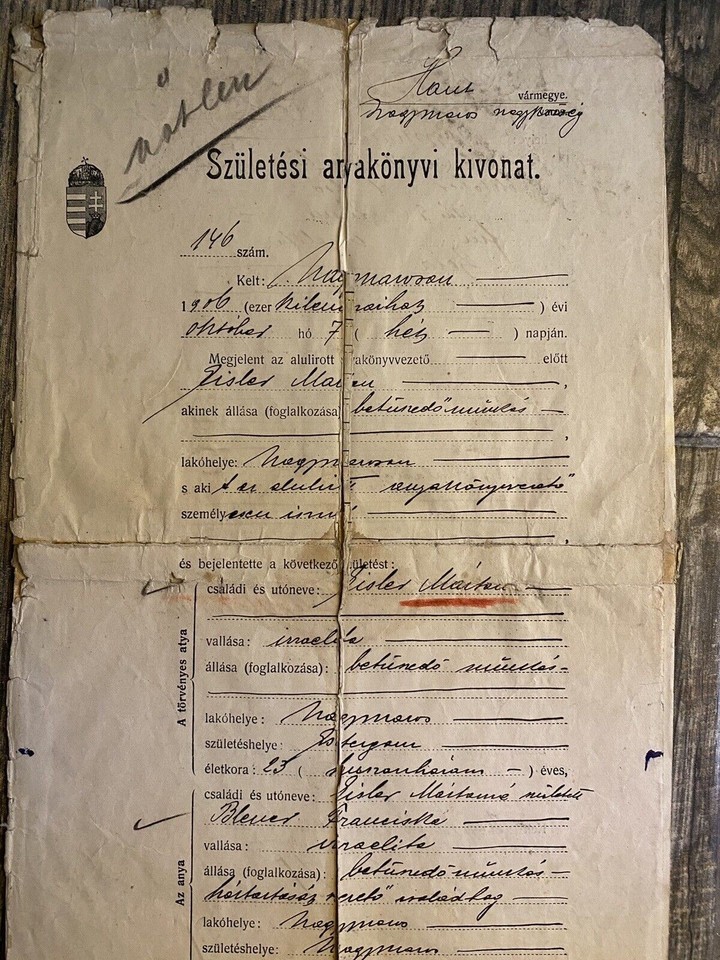 nőtlen
Hont vármegye.
Nagymaros nagyközség
Születési anyakönyvi kivonat.
146 szám.
Kelt: Nagymaroson
1906 (ezer kilencszázhat) évi
október hó 7 (hét) napján.
Megjelent az alulirott anyakönyvvezető előtt
Eisler Márton,
akinek állása (foglalkozása) betüszedő munkás
,
lakóhelye: Nagymaroson
s aki t az alulirott anyakönyvvezető
személyesen ismer
,
és bejelentette a következő születést:
A törvényes atya
családi és utóneve: Eisler Márton
vallása: izraelita
állása (foglalkozása): betüszedő munkás
lakóhelye: Nagymaros
születéshelye: Esztergom
életkora: 23 (huszonhárom) éves,
Az anya
családi és utóneve: Eisler Mártonné született
Franciska
vallása: izraelita
állása (foglalkozása): betüszedő munkás
háztartását vezető családtag
lakóhelye: Nagymaros
születéshelye: Nagymaros